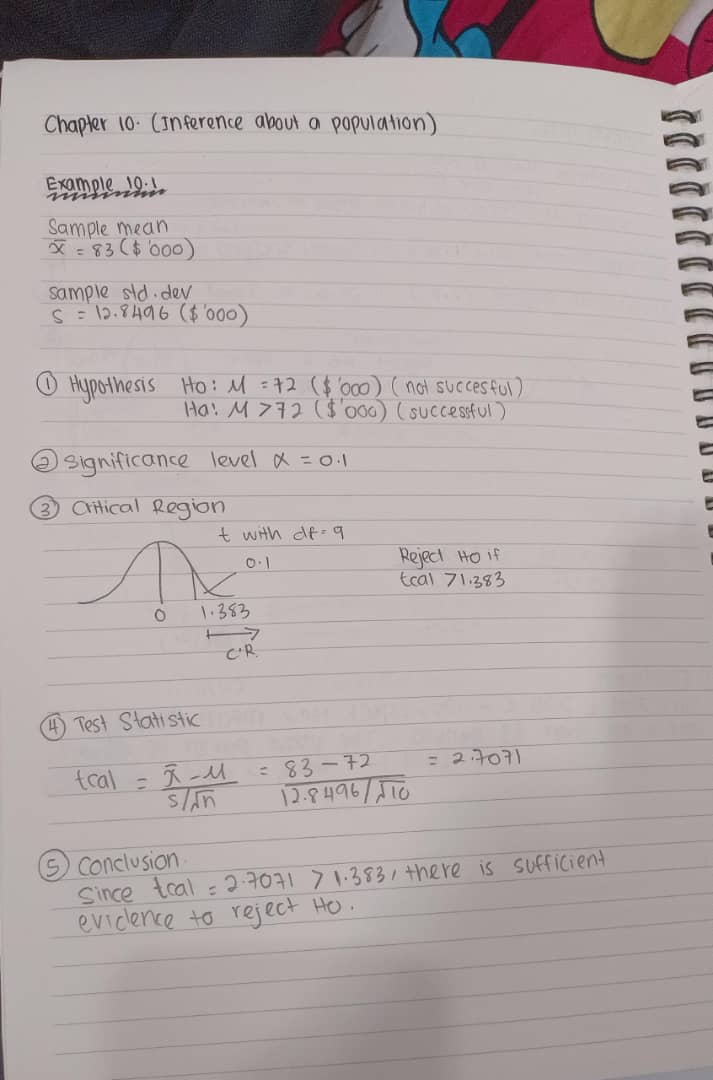 Chapter 10. (Inference about a population)
Example 10.1
Sample mean
x̄ = 83 ($ '000)
sample std. dev
s = 12.8496 ($ '000)
① Hypothesis Ho: M = 72 ($ '000) (not succesful)
Ha: M > 72 ($ '000) (successful)
② Significance level α = 0.1
③ Critical Region
t with df = 9
0.1
Reject Ho if
tcal > 1.383
0 1.383
C.R.
④ Test Statistic
tcal = x̄ - M / s/√n = 83 - 72 / 12.8496/√10 = 2.7071
⑤ Conclusion.
Since tcal = 2.7071 > 1.383, there is sufficient
evidence to reject Ho.